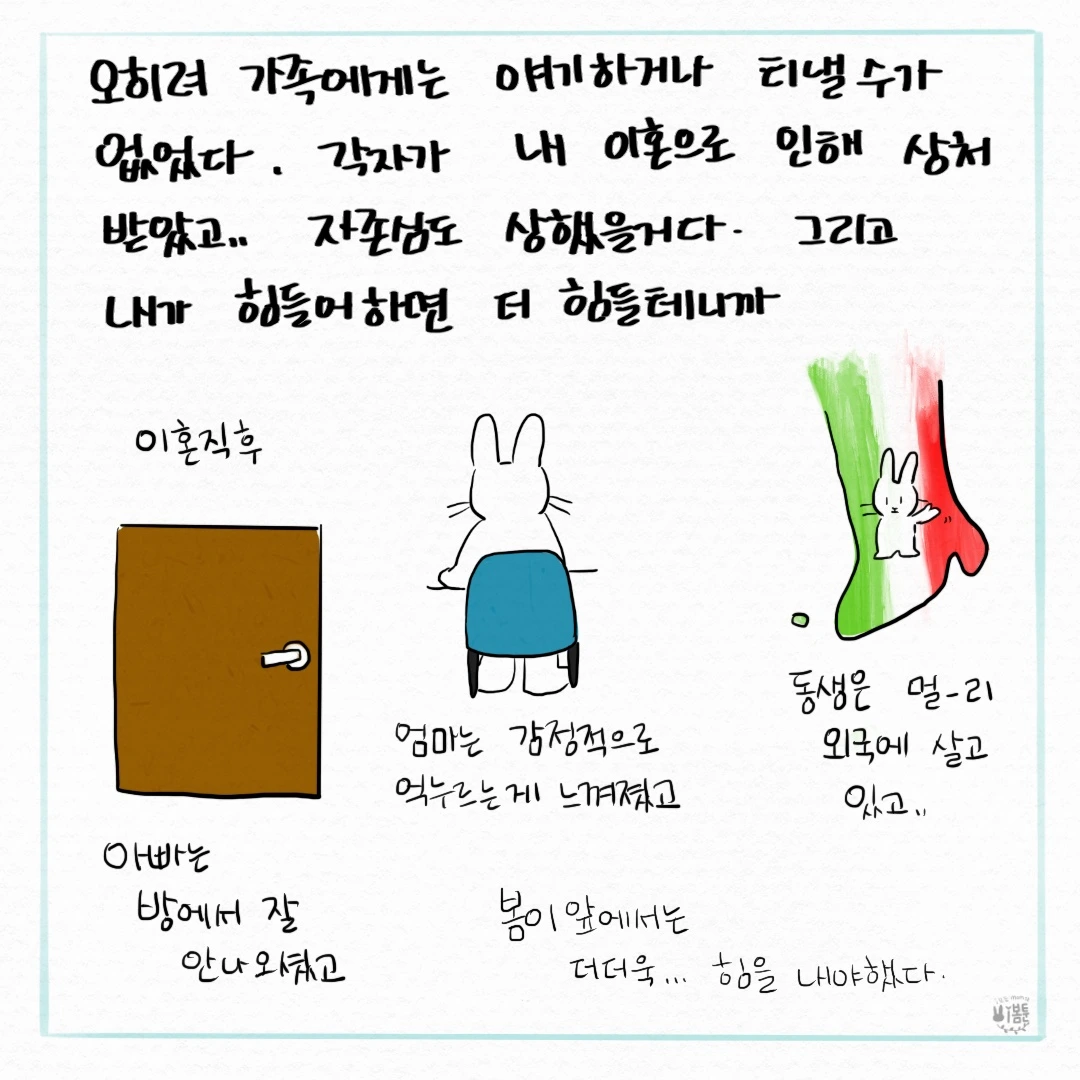 오히려 가족에게는 얘기하거나 티낼 수가
없었다. 각자가 내 이혼으로 인해 상처
받았고.. 자존심도 상했을거다. 그리고
내가 힘들어하면 더 힘들테니까
이혼직후
아빠는
방에서 잘
안나오셨고
엄마는 감정적으로
억누르는게 느껴졌고
동생은 멀-리
외국에 살고
있고..
봄이 앞에서는
더더욱... 힘을 내야했다.